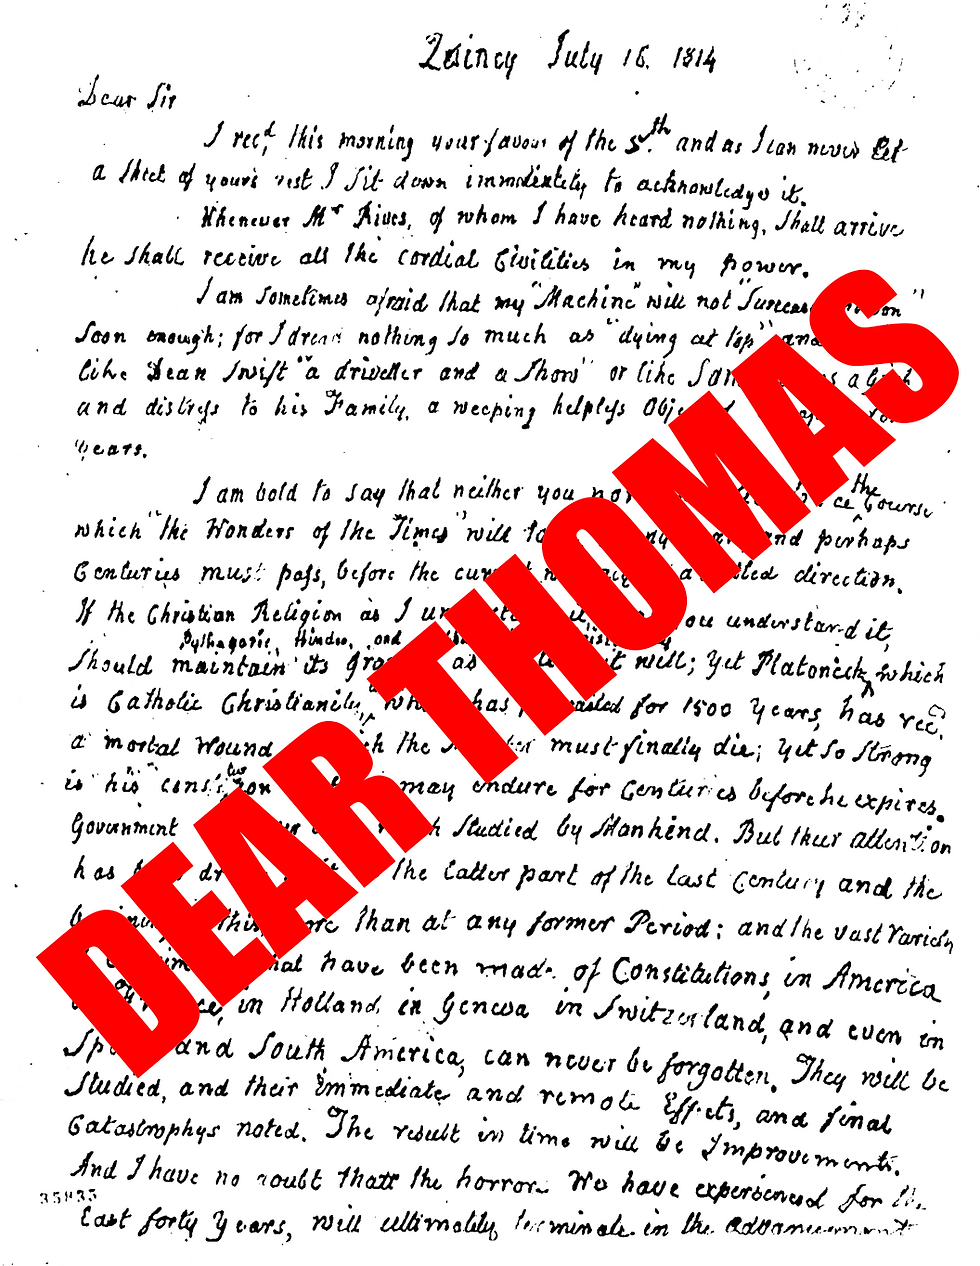 Quincy July 16. 1814
Dear Sir
I recd, this morning your favour of the 5.th and as I can never let
a sheet of yours rest I sit down immediately to acknowledge it.
Whenever Mr Rives, of whom I have heard nothing, shall arrive
he shall receive all the cordial Civilities in my power.
I am sometimes afraid that my "Machine" will not
soon enough; for I dread nothing so much as "dying at Top" and
like Dean Swift "a driveller and a Show" or like
and distress to his Family, a weeping helpless
years.
I am bold to say that neither you the Course
which "the Wonders of the Times" will and perhaps
Centuries must pass, before the direction.
If the Christian Religion as I you understand it,
Pythagoric, Hindoo, and
should maintain its as will; yet Platonick which
is Catholic Christianity, has for 1500 years, has recd.
a mortal wound the must finally die; yet so strong
is his may endure for Centuries before he expires.
Government studied by Mankind. But their attention
has the latter part of the last Century and the
this than at any former Period: and the vast Variety
that have been made of Constitutions, in America
in Holland, in Geneva in Switzerland, and even in
and South America, can never be forgotten. They will be
studied, and their immediate and remote Effects, and final
Catastrophys noted. The result in time will be Improvements.
And I have no doubt that the horrors We have experienced for the
last forty Years, will ultimately terminate in the advancement
35935
DEAR THOMAS